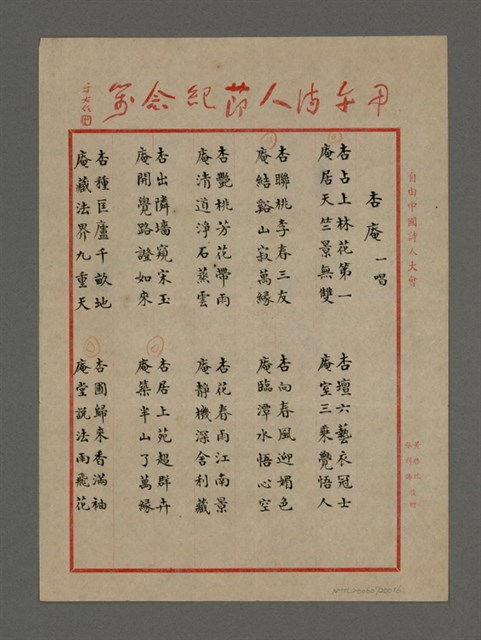 甲午詩人節紀念箋
自由中國詩人大會
杏庵 一唱
杏占上林花第一
庵居天竺景無雙
杏壇六藝衣冠士
庵室三乘覺悟人
杏聯桃李春三友
庵結谿山寂萬緣
杏向春風迎媚色
庵臨潭水悟心空
杏艷桃芳花帶雨
庵清道淨石蒸雲
杏花春雨江南景
庵靜機深舍利藏
杏出隣墻窺宋玉
庵開覺路證如來
杏居上苑超群卉
庵築半山了萬緣
杏種匡廬千畝地
庵藏法界九重天
杏圃歸來香滿袖
庵堂説法雨飛花